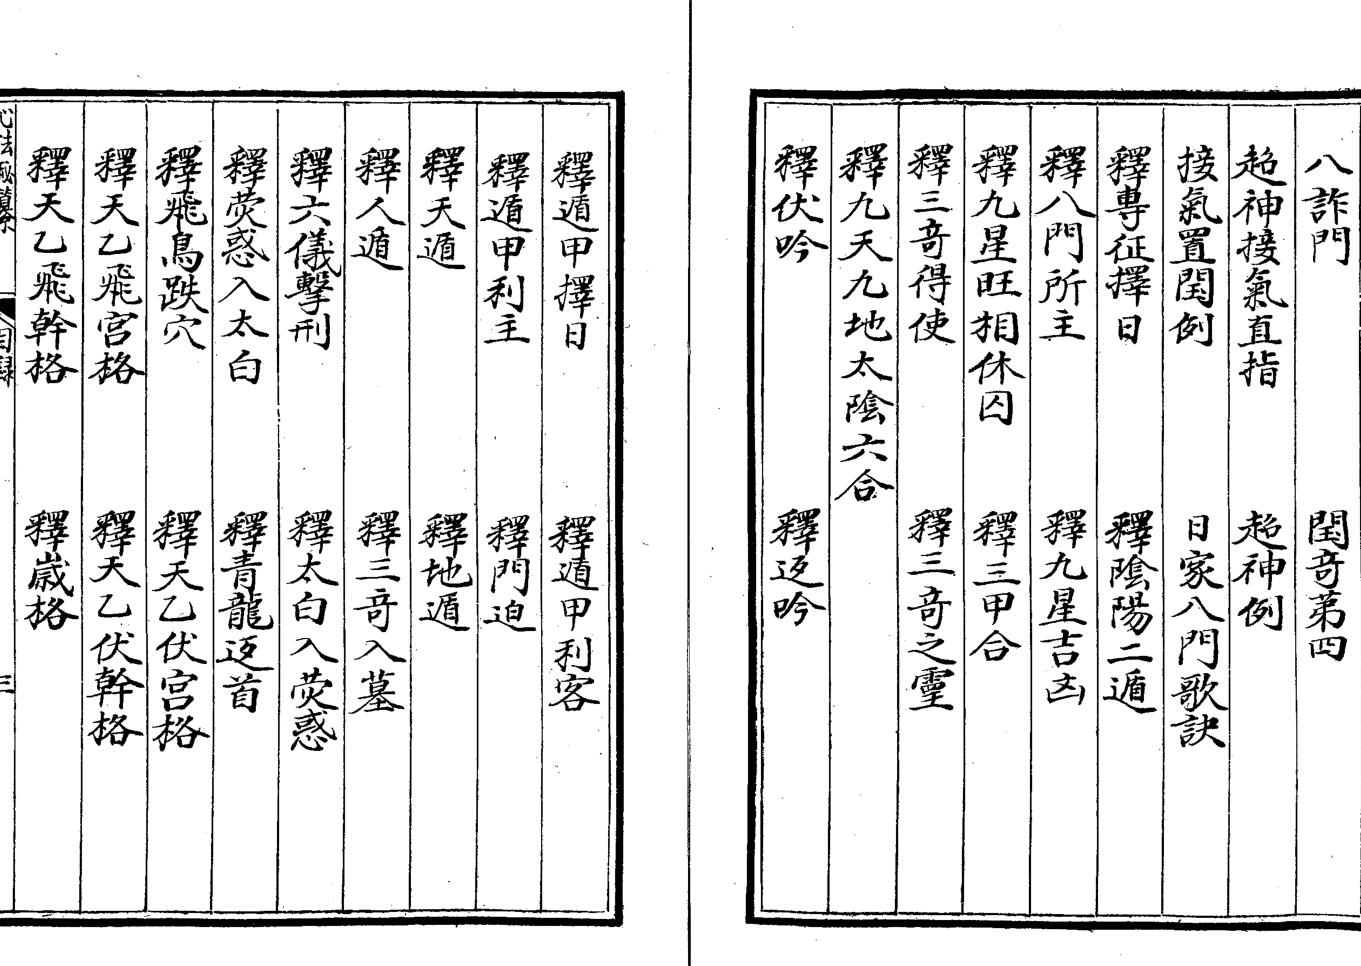 八詐門　閏奇第四
超神接氣直指　超神例
接氣置閏例　日家八門歌訣
釋專征擇日　釋陰陽二遁
釋八門所主　釋九星吉凶
釋九星旺相休囚　釋三甲合
釋三奇得使　釋三奇之靈
釋九天九地太陰六合
釋伏吟　釋返吟
釋遁甲擇日　釋遁甲利客
釋遁甲利主　釋門迫
釋天遁　釋地遁
釋人遁　釋三奇入墓
釋六儀擊刑　釋太白入熒惑
釋熒惑入太白　釋青龍返首
釋飛鳥跌穴　釋天乙伏宮格
釋天乙飛宮格　釋天乙伏幹格
釋天乙飛幹格　釋歲格
心法秘纂　目録　三